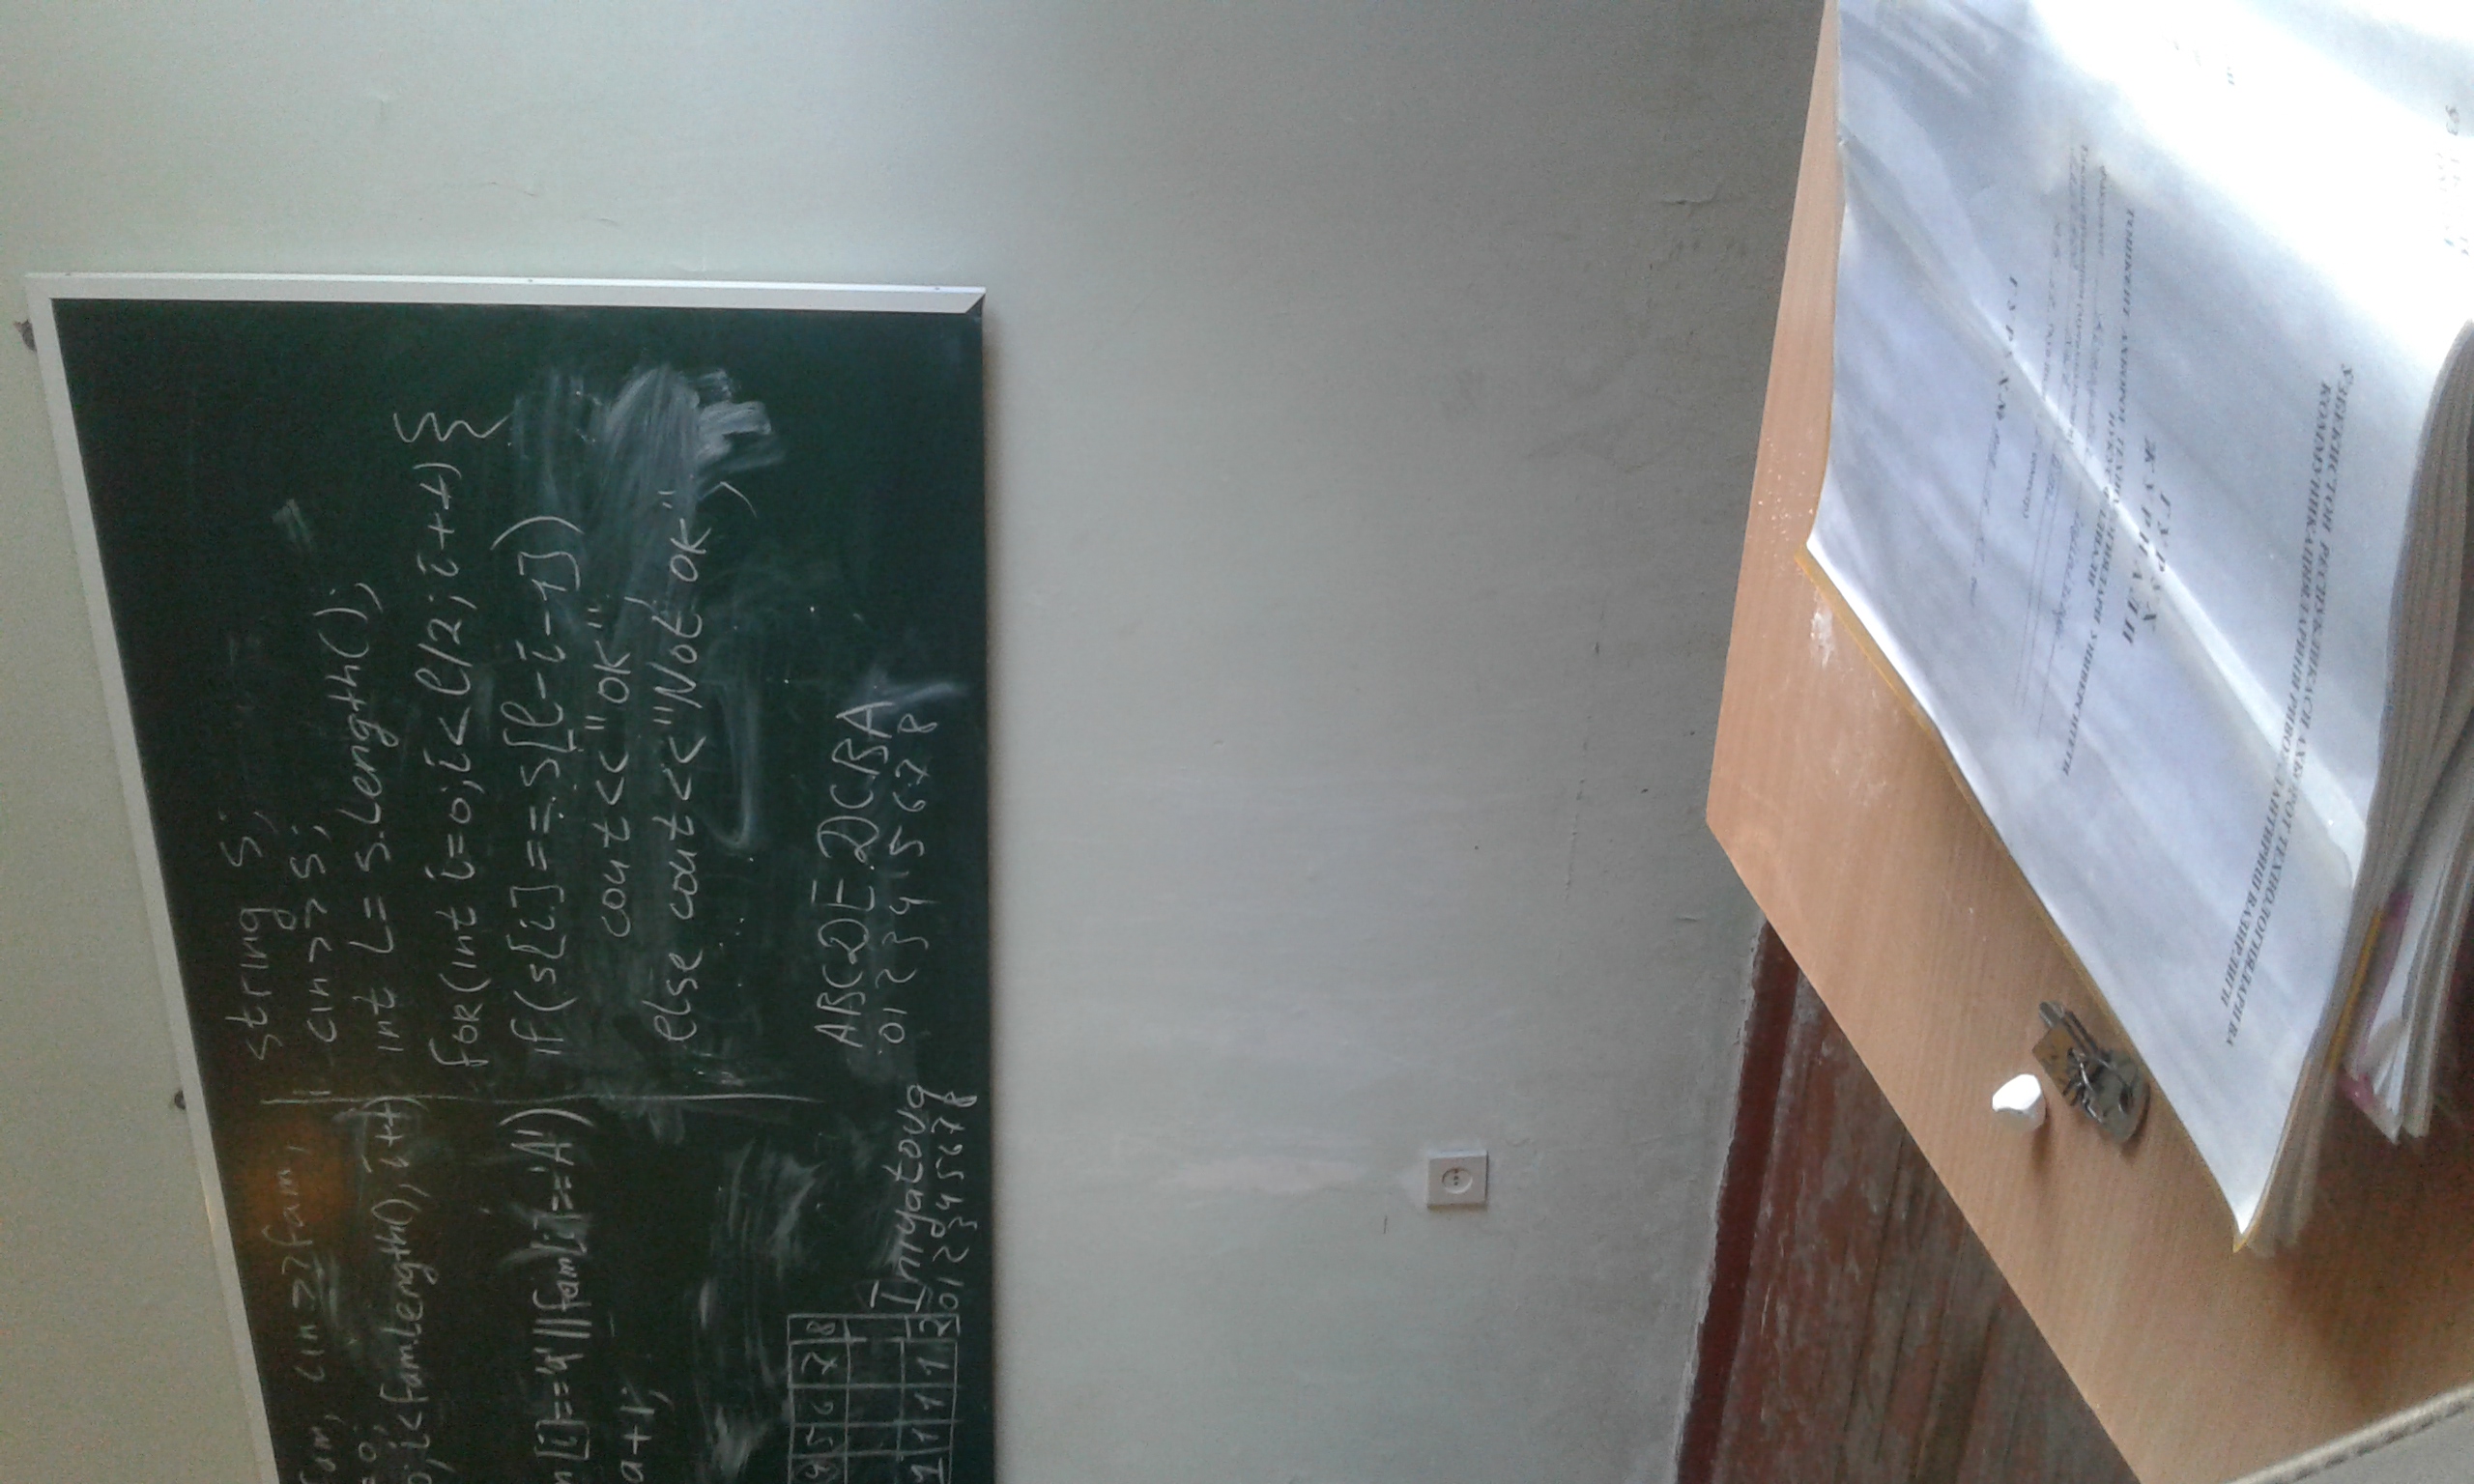 fam, cin>>fam;
=0;
0; i<fam.length(); i++)
[i]=='a' || fam[i]=='A')
a+1;
4 5 6 7 8
1 1 1 1 2
Iniyatova
0 1 2 3 4 5 6 7 8
string s;
cin>>s;
int L= s.length();
for(int i=0; i<l/2; i++){
if(s[i]==s[l-i-1])
cout<<"ok";
else cout<<"Not ok";
ABCDEDCBA
0 1 2 3 4 5 6 7 8
ЎЗБЕКИСТОН РЕСПУБЛИКАСИ АХБОРОТ ТЕХНОЛОГИЯЛАРИ ВА
КОММУНИКАЦИЯЛАРИНИ РИВОЖЛАНТИРИШ ВАЗИРЛИГИ
ГУРУХ
ЖУРНАЛИ
ТОШКЕНТ АХБОРОТ ТЕХНОЛОГИЯЛАРИ УНИВЕРСИТЕТИ
НУКУС ФИЛИАЛИ
ГУРУХ №